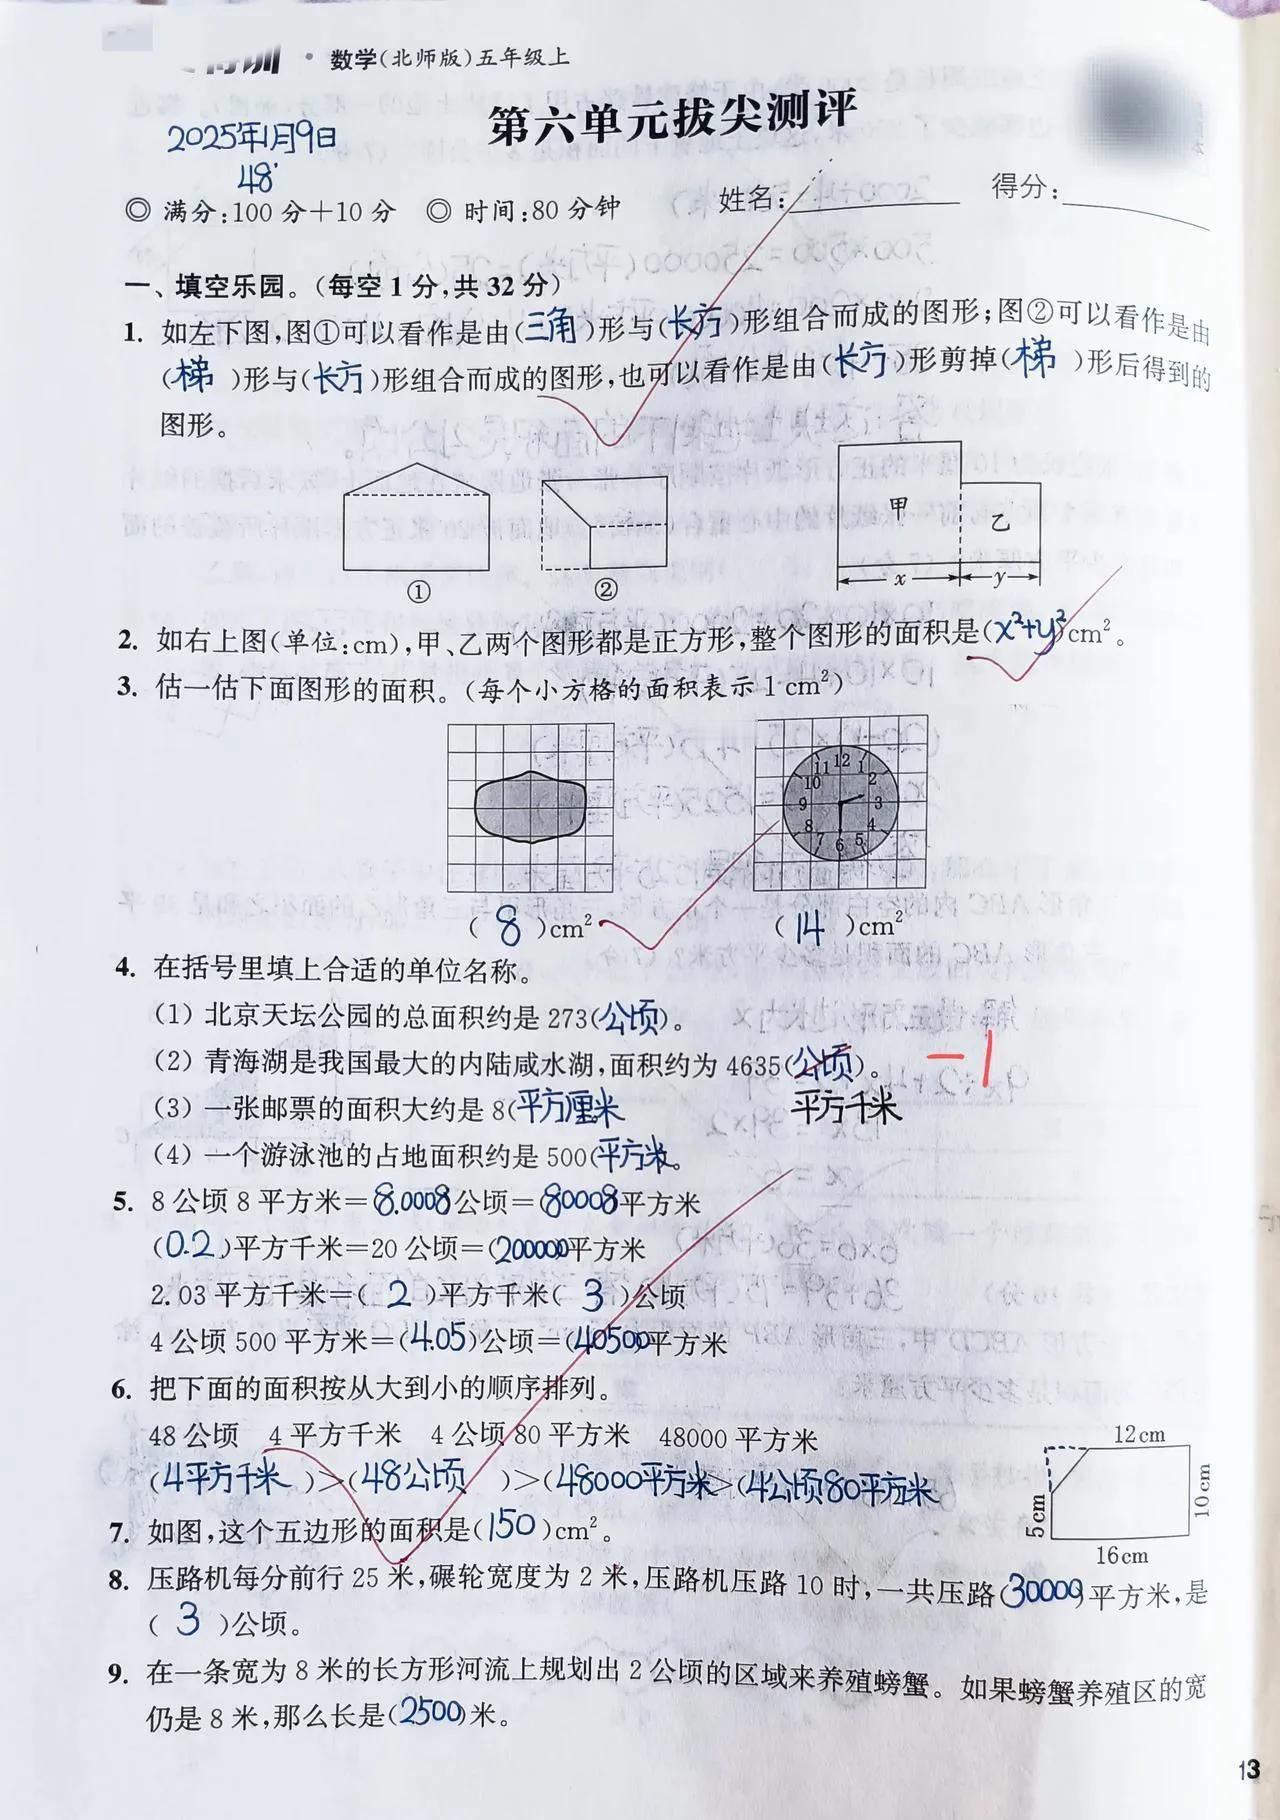 特训 · 数学(北师版)五年级上
第六单元拔尖测评
2025年1月9日
48'
◎ 满分:100 分+10 分 ◎ 时间:80 分钟 姓名: 得分:
一、填空乐园。(每空 1 分,共 32 分)
1. 如左下图,图①可以看作是由(三角)形与(长方)形组合而成的图形;图②可以看作是由
(梯)形与(长方)形组合而成的图形,也可以看作是由(长方)形剪掉(梯)形后得到的
图形。
甲 乙
x y
① ②
2. 如右上图(单位:cm),甲、乙两个图形都是正方形,整个图形的面积是(x²+y²)cm²。
3. 估一估下面图形的面积。(每个小方格的面积表示 1 cm²)
12 1 2 3 4 5 6 7 8 9 10 11
(8)cm² (14)cm²
4. 在括号里填上合适的单位名称。
(1) 北京天坛公园的总面积约是 273(公顷)。
(2) 青海湖是我国最大的内陆咸水湖,面积约为 4635(公顷)。 -1
平方千米
(3) 一张邮票的面积大约是 8(平方厘米
(4) 一个游泳池的占地面积约是 500(平方米。
5. 8 公顷 8 平方米=8.0008公顷=(80008平方米
(0.2)平方千米=20 公顷=(200000平方米
2.03 平方千米=(2)平方千米(3)公顷
4 公顷 500 平方米=(4.05)公顷=(40500平方米
6. 把下面的面积按从大到小的顺序排列。
48 公顷 4 平方千米 4 公顷 80 平方米 48000 平方米
(4平方千米)>(48公顷)>(48000平方米>(4公顷80平方米
12cm
5cm
10cm
16cm
7. 如图,这个五边形的面积是(150)cm²。
8. 压路机每分前行 25 米,碾轮宽度为 2 米,压路机压路 10 时,一共压路(30000)平方米,是
(3)公顷。
9. 在一条宽为 8 米的长方形河流上规划出 2 公顷的区域来养殖螃蟹。如果螃蟹养殖区的宽
仍是 8 米,那么长是(2500)米。
13